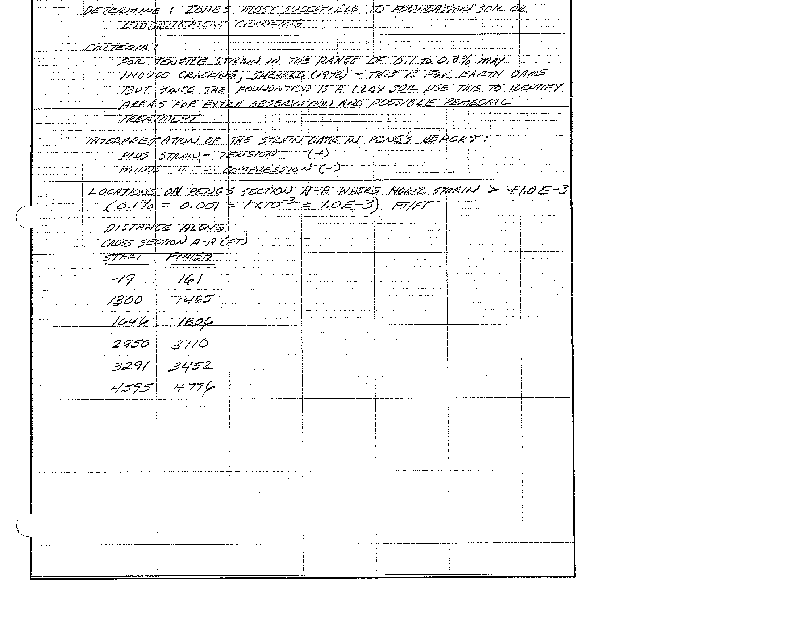 DETERMINE : ZONES MOST SUSCEPTIBLE TO FOUNDATION SOIL OR
CRITERIA:
FOR TENSILE STRAIN IN THE RANGE OF 0.1 TO 0.3% MAY
INDUCE CRACKING, SHERARD (1973) - THIS IS FOR EARTH DAMS
BUT SINCE THE FOUNDATION IS A CLAY SOIL USE THIS TO IDENTIFY
AREAS FOR EXTRA OBSERVATION AND POSSIBLE REMEDIAL
TREATMENT
INTERPRETATION OF THE STRAIN DATA IN REPORT:
PLUS STRAIN - TENSION (+)
MINUS " - COMPRESSION (-)
LOCATIONS ON SECTION A-A WHERE HORIZ STRAIN > +1.0 E-3
(0.1% = 0.001 = 1x10-3 = 1.0E-3) FT/FT
DISTANCE ALONG
CROSS SECTION A-A (FT)
START FINISH
-19 161
1300 1455
1646 1806
2950 3110
3291 3452
4595 4776